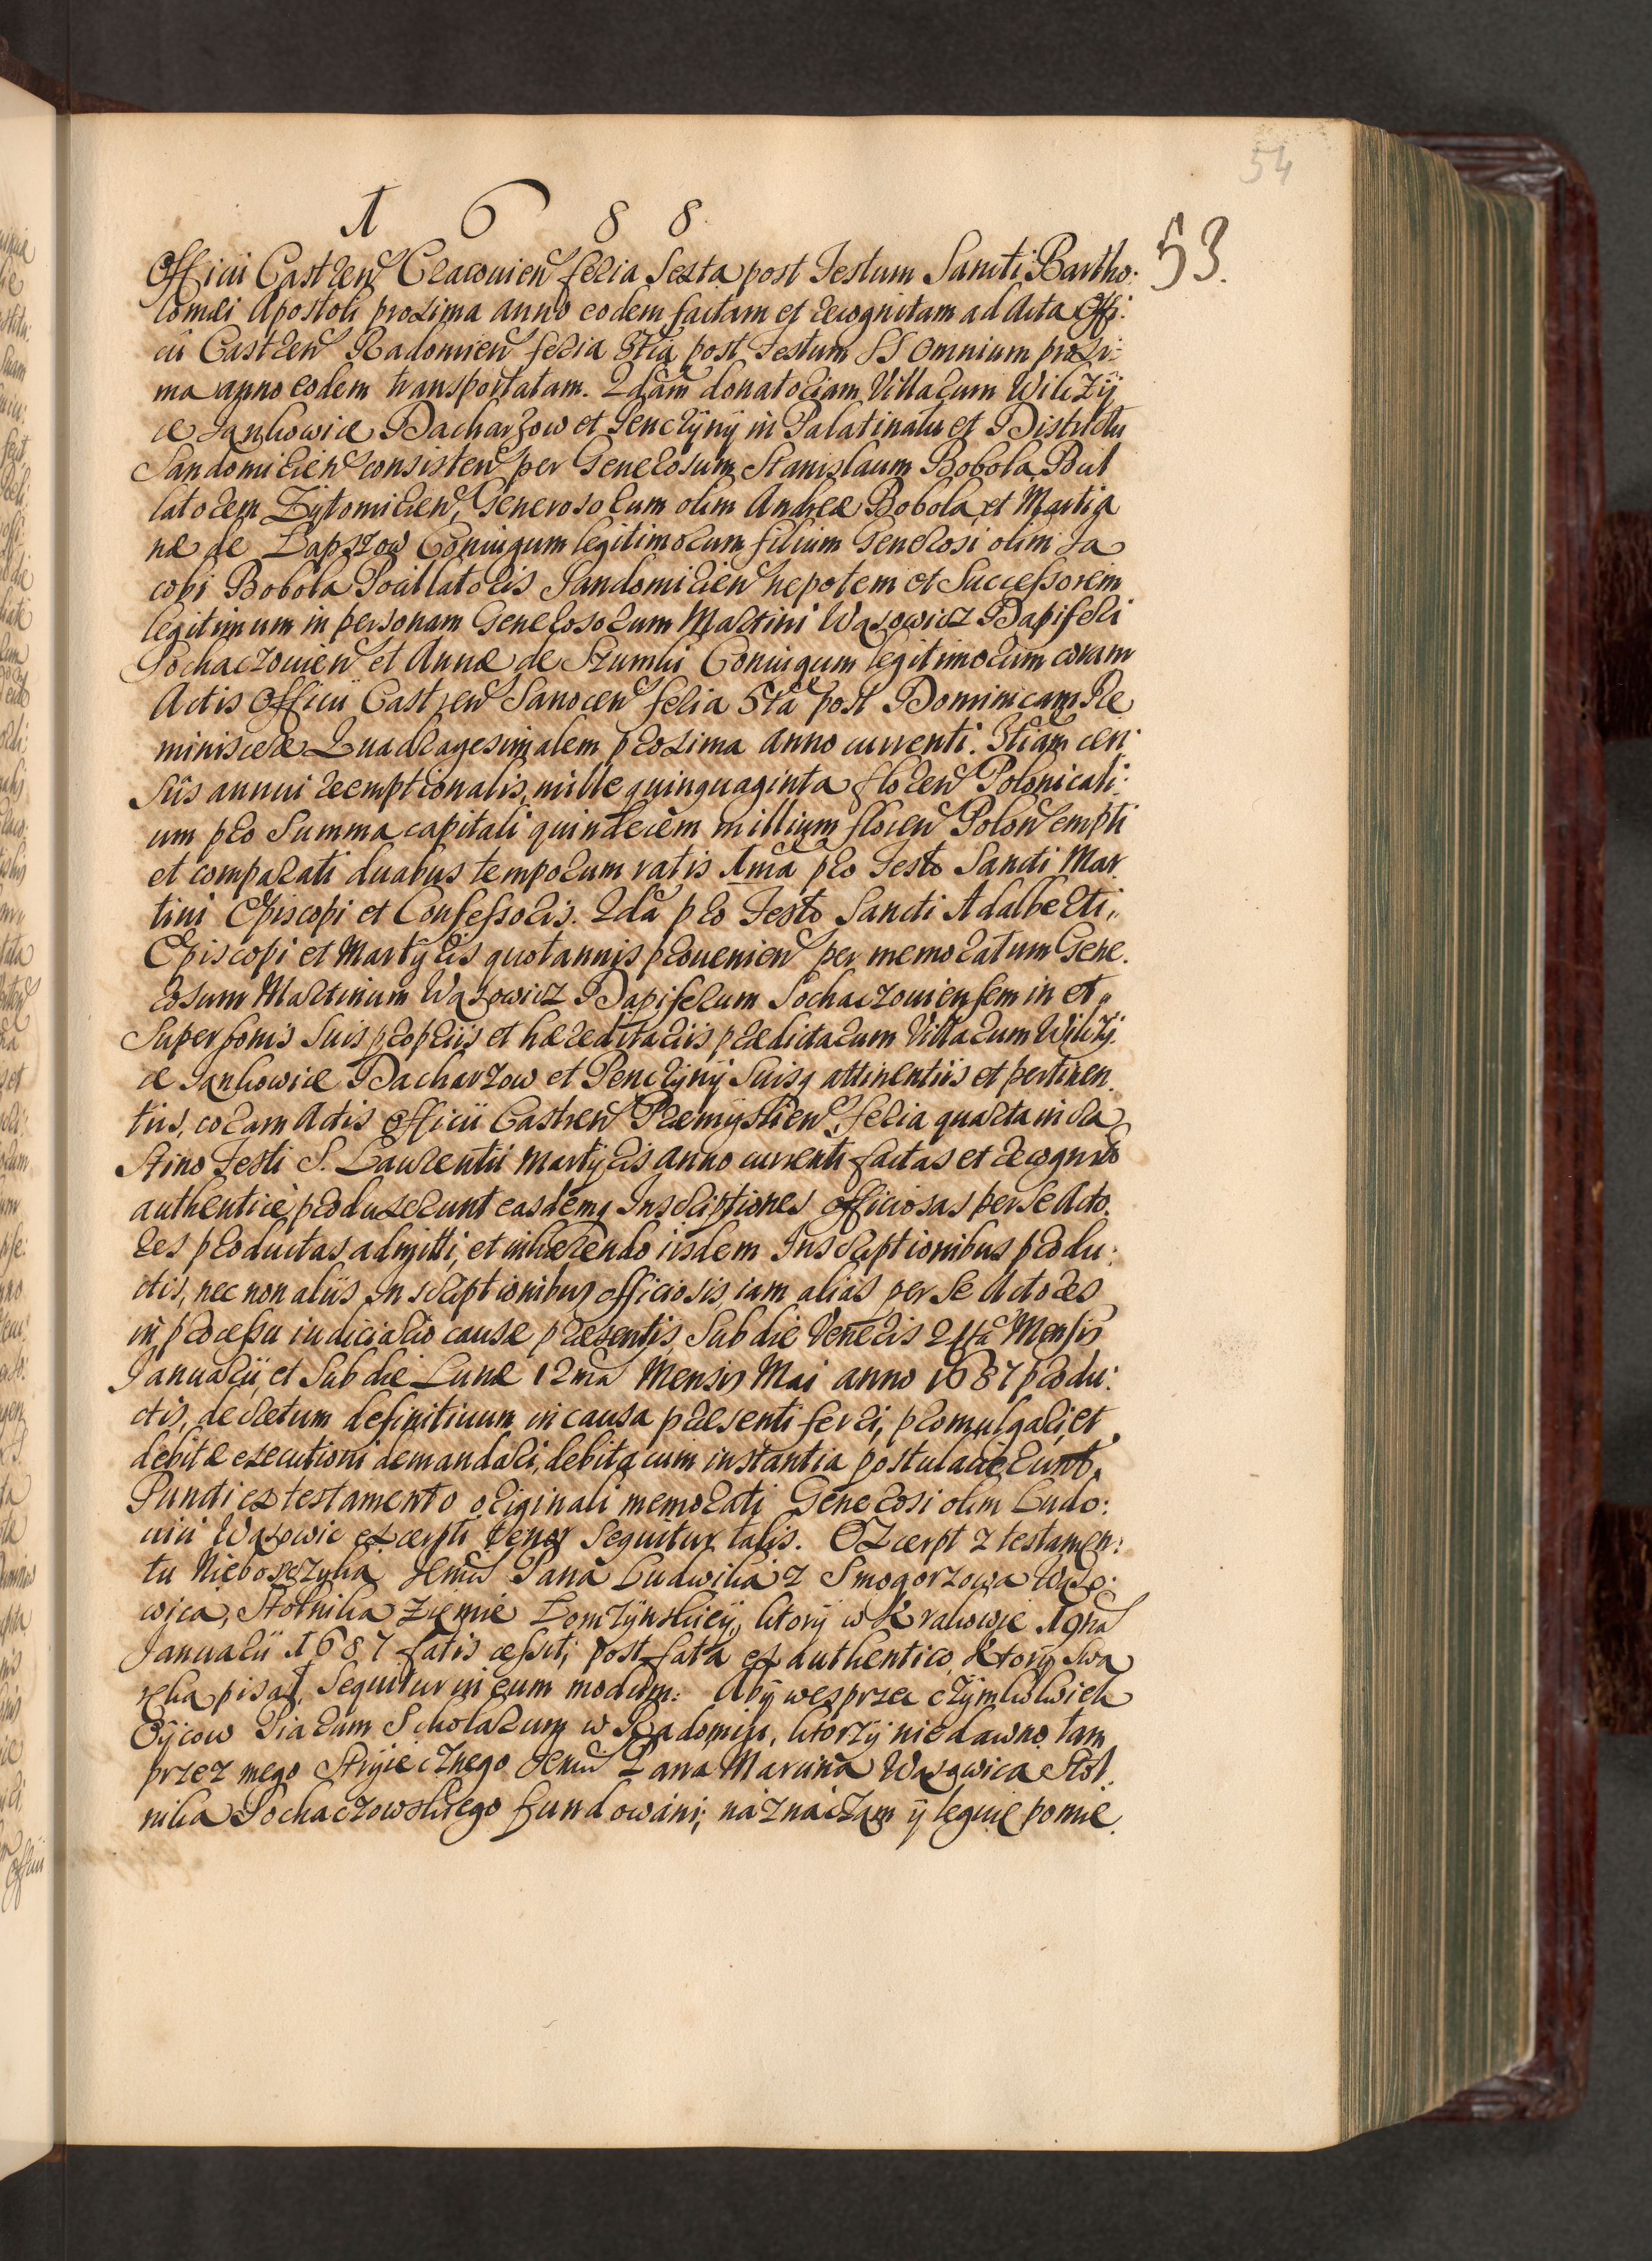 54
1688
53.
Officii Castren Cracovien feria Sexta post Festum Sancti Bartho:
lomæi Apostoli proxima anno eodem factam et recognitam ad Acta Offi:
cii Castren Radomien feria 3tia post Festum SS Omnium proxi:
ma anno eodem transportatam. 2dam donatoriam Villarum Wilczÿ
ce Jankowice Bacharzow et Penczÿnÿ in Palatinatu et Districtu
Sandomirien consisten per Generosum Stanislaum Bobola Pocil
latorem Zÿtomirien, Generosorum olim Andreæ Bobola et Martia
næ de Lapszow Coniugum legitimorum filium Generosi olim Ja
cobi Bobola Pocillatoris Sandomirien nepotem et Successorem
legitimum in personam Generosorum Martini Wąsowicz Dapiferi
Sochaczouien et Annæ de Szumki Coniugum legitimorum coram
Actis Officii Castren Sanocen feria 5ta post Dominicam Re
miniscere Quadragesimalem proxima Anno currenti. 3tiam cen:
sûs annui reemptionalis, mille quinquaginta floren Polonicali:
um pro Summa capitali quindecem millium floren Polon empti
et comparati duabus temporum ratis 1ma pro Festo Sancti Mar
tini Episcopi et Confessoris. 2da pro Festo Sancti Adalberti,
Episcopi et Martÿris quotannis prouenien per memoratum Gene.
rosum Martinum Wąsowicz Dapiferum Sochaczouiensem in et
Super bonis Suis proprijs et hæreditarijs prædictarum Villarum Wilczÿ.
ce Jankowice Bacharzow et Penczÿnÿ Suisq attinentiis et pertinen.
tiis, coram Actis Officii Castren Præmÿslien, feria quarta in cra
stino Festi S. Laurentii Martÿris anno currenti factas et recognit
authenticè produxerunt easdemq Inscriptiones officiosas per se Acto.
res productas admitti, et inhærendo iisdem Inscriptionibus produ:
ctis, nec non aliis Inscriptionibus officiosis iam aliàs per se Actores
in processu iudiciario causæ præsentis, Sub die Veneris 24ta Mensis
Januarii, et Sub die Lunæ 12ma Mensis Mai anno 1687 produ:
ctis, decretum definitiuum in causa præsenti ferri, promulgari, et
debitæ executioni demandari, debita cum instantia postulauerunt.
Puncti ex testamento originali memorati Generosi olim Ludo:
uici Wąsowic excerpti tenor Sequitur talis. Excerpt z testamen:
tu Nieboszczyka Jemci Pana Ludwika z Smogorzowa Wąso:
wica, Stolnika ziemie Łomzÿnskieÿ, ktorÿ w Krakowie
Januarii 1687 fatis cessit, post fata ex authentico, ktorÿ Swą
ręką pisał, Sequitur in eum modum: Abÿ wesprzec czÿmkolwiek
Oÿcow Piarum Scholarum w Radomiu, ktorzÿ niedawno tam
przez mego Stryiecznego Jemci Pana Marcina Wąsowica Stol
nika Sochaczowskiego fundowani, naznaczam ÿ leguię pomie